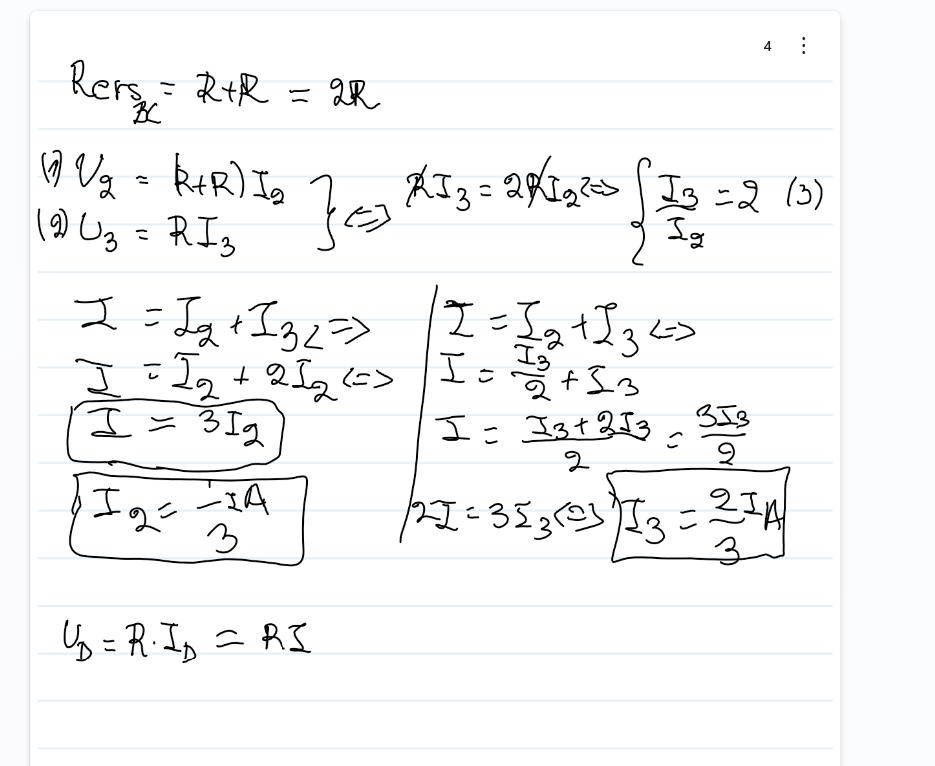 4
Rers_BC = R+R = 2R
(1) U₂ = (R+R)I₂ } <=> RI₃ = 2RI₂ <=> { I₃/I₂ = 2 (3)
(2) U₃ = RI₃
I = I₂ + I₃ <=>
I = I₂ + 2I₂ <=>
I = 3I₂
I₂ = IA/3
I = I₂ + I₃ <=>
I = I₃/2 + I₃
I = (I₃ + 2I₃)/2 = 3I₃/2
2I = 3I₃ <=> I₃ = 2IA/3
U_D = R·I_D = RI